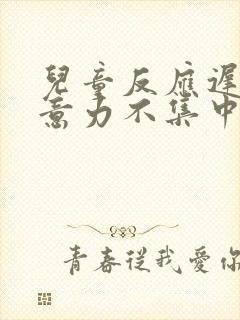 兒童反應遲
意力不集中
青春從我愛你